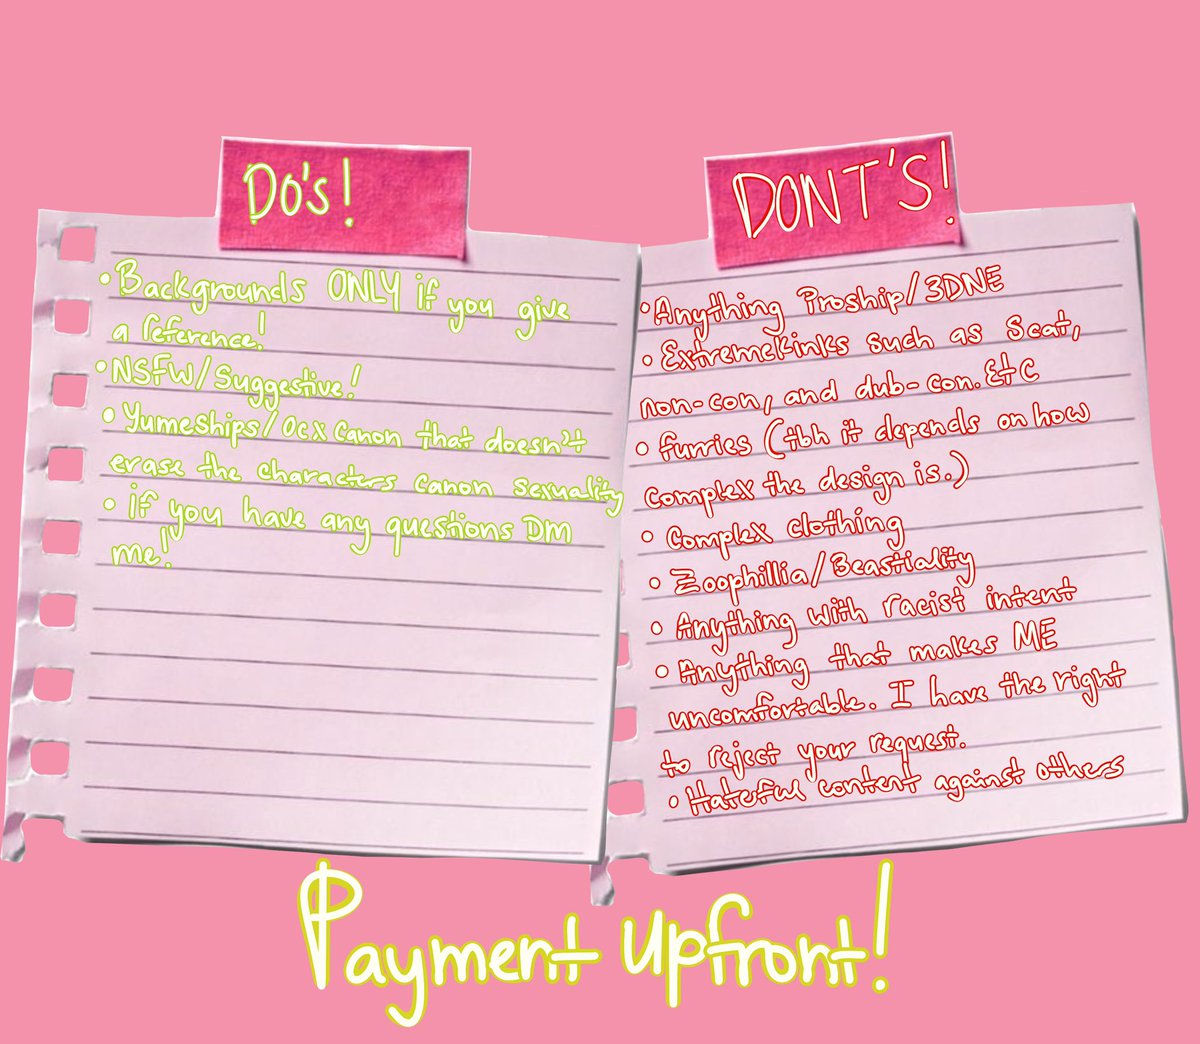 Do's!
• Backgrounds ONLY if you give
a reference!
• NSFW/Suggestive!
• Yumeships/OCx Canon that doesn't
erase the characters canon sexuality
• if you have any questions DM
me!
DONT'S!
• Anything Proship/3DNE
• Extremekinks such as Scat,
non-con, and dub-con. Etc
• furries (tbh it depends on how
complex the design is.)
• Complex clothing
• Zoophillia/Beastiality
• Anything with racist intent
• Anything that makes ME
uncomfortable. I have the right
to reject your request.
• Hateful content against others
Payment upfront!